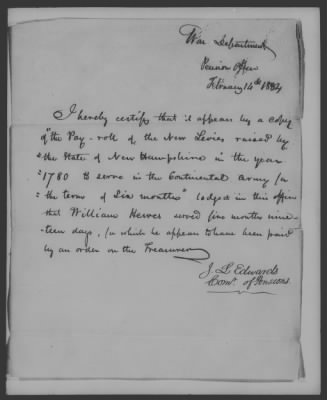 War Department
Pension Office
February 14th 1834
I hereby certify that it appears by a copy
of "the Pay-roll of the New Levies raised by
"the State of New Hampshire in the year
"1780 to serve in the Continental Army for
"the term of Six months" lodged in this office
that William served five months nine-
teen days, for which he appears to have been paid
by an order on the Treasurer
J. L Edwards
Comr. of Pensions